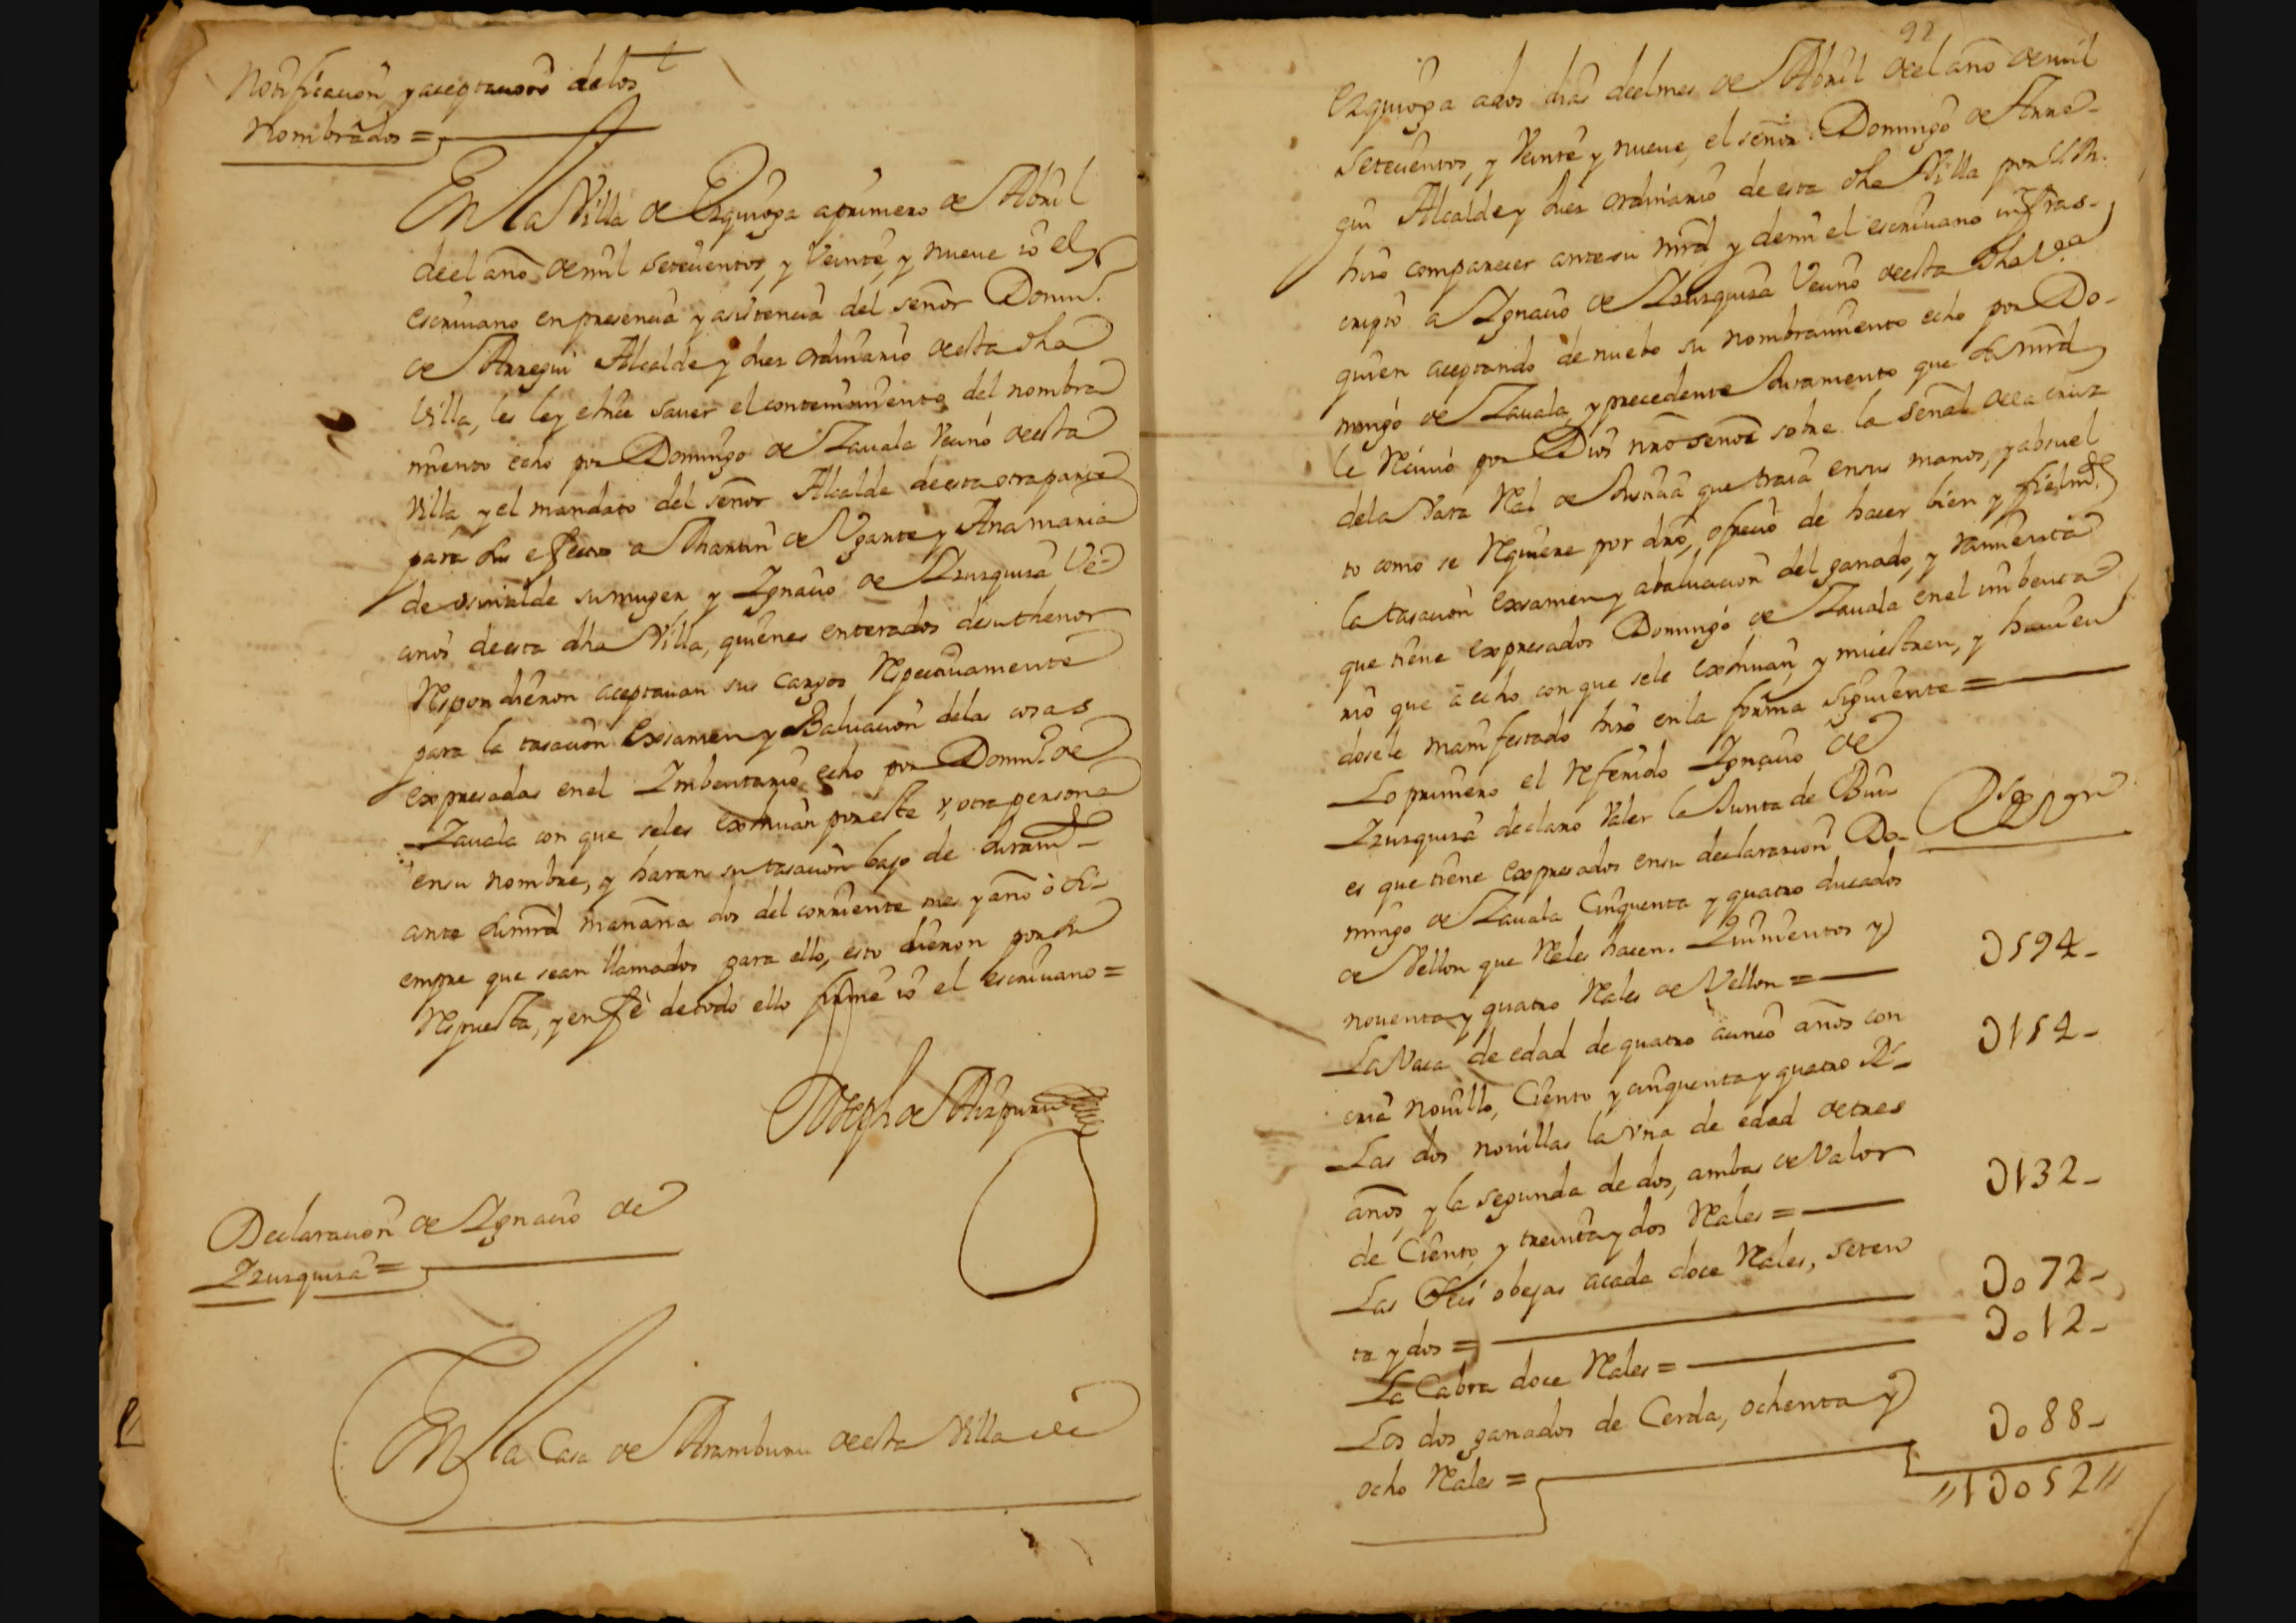 Notificacion y aceptacion de los
Nombrados =
En la Villa de Ezquioga a primero de Abril
de el año de mil setecientos, y Veinte, y nueve io el
escriuano en presencia y asistencia del señor Domin.º
de Arregui Alcalde y Juez ordinario de esta dha
Villa, les ley e hice sauer el contenimiento del nombra
miento echo por Domingo de Zauala Vecino de esta
Villa y el mandato del señor Alcalde de esta otra parte
para su efecto a Martin de Ugarte y Ana maria
de osinalde su muger y Ignacio de Izurquiza Ve-
cinos de esta dha Villa, quienes enterados de su thenor
Respondieron aceptauan sus cargos Respectiuamente
para la tasacion Exsamen y Baluacion de las cosas
expresadas en el Imbentario echo por Domin.º de
Zauala con que seles exhiuan por este, y, otra persona
en su nombre, y haran su tasacion bajo de Juram.to
ante su mrd mañana dos del corriente mes y año ò si-
empre que sean llamados para ello, esto dieron por su
Respuesta, y en fè de todo ello firmè io el escriuano =
Joseph de Aizpuru
Declaracion de Ignacio de
Izurquiza =
En la Casa de Aramburu de esta Villa de
92
Ezquioga a dos dias de el mes de Abril de el año de mil
setecientos, y Veinte y nueve, el señor Domingo de Arre-
gui Alcalde y Juez ordinario de esta dha Villa por S.M.
hizo comparecer ante su mrd y de mi el escriuano infras-
cripto a Ignacio de Izurquiza Vecino de esta dha V.ª
quien aceptando de nuebo su nombramiento echo por Do-
mingo de Zauala, y precedente Juramento que su mrd
le Reciuió por Dios nro señor sobre la señal de la cruz
de la Vara Rl de Justicia que traia en sus manos, y absuel
to como se Requiere por dro, ofrecio de hacer bien y fielm.te
la tasacion Exsamen y abaluacion del ganado, y
que tiene expresados Domingo de Zauala en el imbenta
rio que à echo con que sele exhiuan, y muestren, y hauien
dosele manifestado hizo en la forma siguiente =
Lo primero el Referido Ignacio de
Izurquiza declaro Valer la Junta de Bue-
es que tiene expresados en su declaracion Do-
mingo de Zauala Cinquenta y quatro ducados
de Vellon que Reales hacen. Quinientos y
nouenta y quatro Reales de Vellon = D594-
La Vaca de edad de quatro a cinco años con
cria nouillo, Ciento y cinquenta y quatro Rs- D154-
Las dos nouillas la vna de edad de tres
años, y la segunda de dos, ambas de Valor
de Ciento, y treinta y dos Reales = D132-
Las Seis obejas a cada doce Reales, seten
ta y dos = Do72-
La Cabra doce Reales = Do12-
Los dos ganados de Cerda, ochenta y
ocho Reales = Do88-
"1Do52"